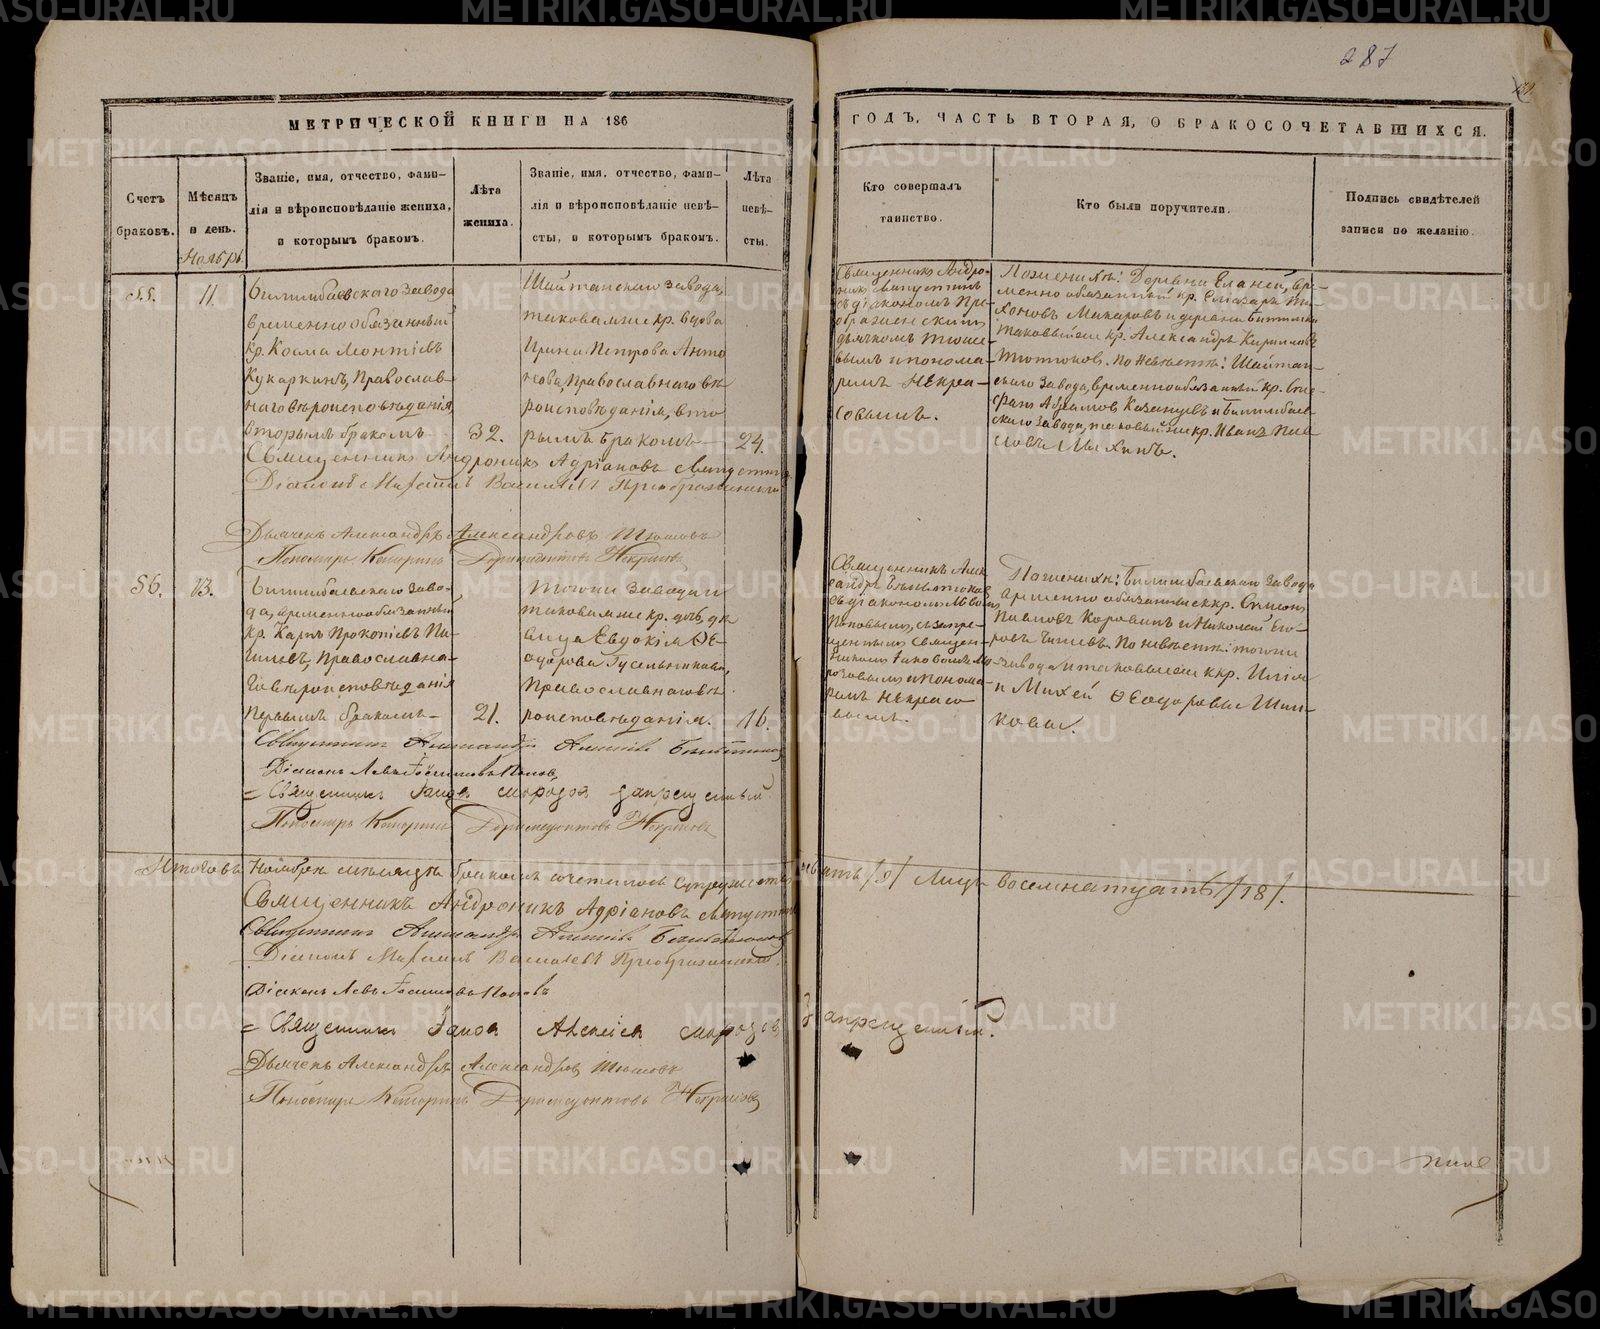 287
МЕТРИЧЕСКОЙ КНИГИ НА 186
ГОДЪ, ЧАСТЬ ВТОРАЯ, О БРАКОСОЧЕТАВШИХСЯ.
Счетъ
браковъ.
Мѣсяцъ
и день.
Ноябрь.
Званіе, имя, отчество, фами-
лія и вѣроисповѣданіе жениха,
и которымъ бракомъ.
Лѣта
жениха.
Званіе, имя, отчество, фами-
лія и вѣроисповѣданіе невѣ-
сты, и которымъ бракомъ.
Лѣта
невѣ-
сты.
Кто совершалъ
таинство.
Кто были поручители.
Подпись свидѣтелей
записи по желанію.
55.
11.
Билимбаевского завода
временнообязанный
кр. Косма Леонтіевъ
Кукаркинъ, Православ-
наго вѣроисповѣданія,
вторымъ бракомъ
32.
Шайтанскаго завода,
таковаяже кр. вдова
Ирина Петрова Анто
нова, Православнаго вѣ
роисповѣданія, вто
рымъ бракомъ
24.
Священникъ Андро-
никъ
съ діакономъ Пре-
ображенскимъ
дьячкомъ Тюше-
вымъ и понома-
ремъ Некра-
совымъ.
По женихѣ: Деревни Еланей, вре-
менно обязанный кр. Елизаръ Ти-
хоновъ Макаровъ и деревни
таковыйже кр. Александръ Кириловъ
По невѣстѣ: Шайтан-
скаго завода, временнообязанный кр. Епи-
фанъ Абрамовъ Казанцевъ и Билимбаев-
скаго завода, таковыйже кр. Иванъ
Священникъ Андроникъ Адріановъ
Діаконъ Максимъ Василіевъ Преображенскій
Дьячекъ Александръ Александровъ Тюшевъ
Пономарь Катеринъ Доримедонтовъ Некрасовъ
56.
13.
Билимбаевскаго заво-
да, временнообязанный
кр. Карпъ Прокопіевъ Пи-
Православна-
го вѣроисповѣданія
первымъ бракомъ
21.
тогоже завода и
таковаяже кр. дочь, дѣ
вица Евдокія Ѳе-
одорова Гусельникова,
Православнаго вѣ
роисповѣданія.
16.
Священникъ Алек
сандръ
съ діакономъ Львомъ
Поповымъ, съ запре-
щеннымъ священ-
никомъ Іаковомъ Мо
розовымъ и понома-
ремъ Некрасо
вымъ.
По женихѣ: Билимбаевскаго завода
временно обязанные ккр. Симонъ
Павловъ Коровинъ и Николай Его-
ровъ По невѣстѣ: тогоже
завода и таковыеже ккр. Илія
и Михей Ѳеодоровы Шин-
ковы.
Священникъ Александръ Алексіевъ
Діаконъ Левъ Попов
Священникъ Іаковъ Морозов запрещенный
Пономарь Катеринъ Доримедонтовъ Некрасовъ
Итого въ Ноябрѣ мѣсяцѣ бракомъ сочеталось супружествъ девять /9/ лицъ восемнатцать /18/.
Священникъ Андроникъ Адріановъ
Священникъ Александръ Алексіевъ
Діаконъ Максимъ Василіевъ Преображенскій
Діаконъ Левъ Поповъ
Священникъ Іаковъ Алексіев Морозовъ запрещенный.
Дьячекъ Александръ Александровъ Тюшевъ
Пономарь Катеринъ Доримедонтовъ Некрасовъ
METRIKI.GASO-URAL.RU